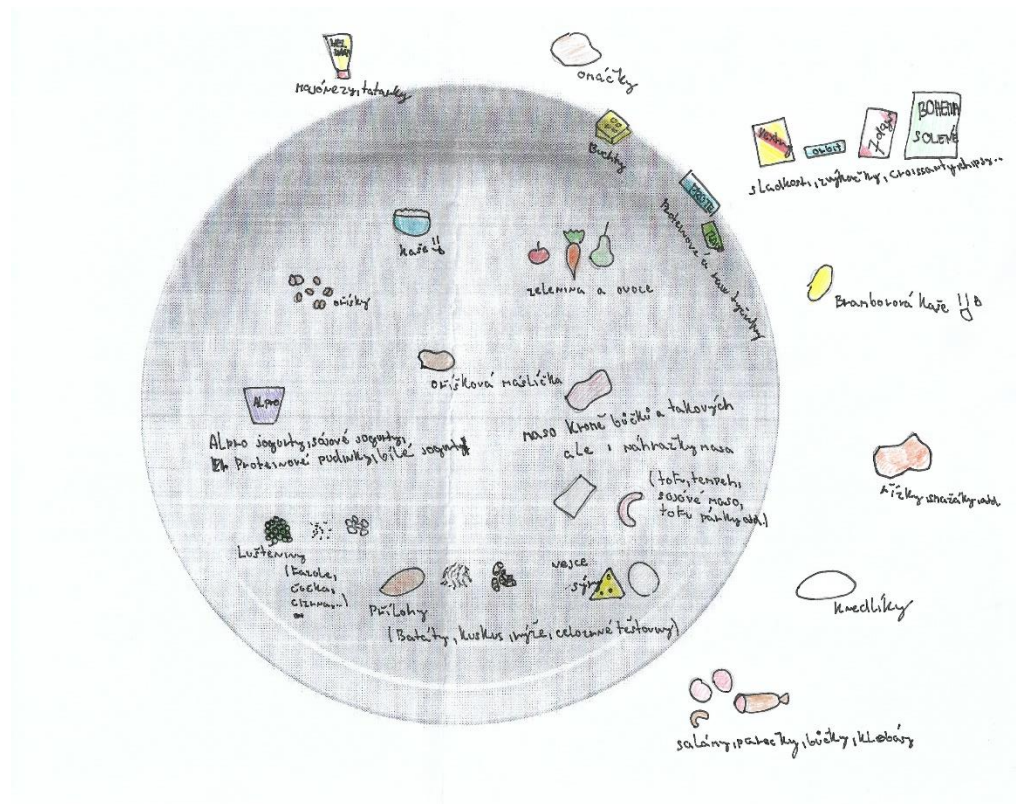 majonézy, tatarky
omáčky
Buchty
BOHEMIA
SOLENÉ
orbit
7 days
sladkosti, žvýkačky, croissanty, chipsy...
Proteinové a raw tyčinky
kaše!!
oříšky
zelenina a ovoce
Bramborová kaše !!
oříšková máslíčka
ALPRO
Alpro jogurty, sójové jogurty,
Proteinové pudinky, bílé jogurty
maso kromě bůčků a takových
ale i náhražky masa
(tofu, tempeh,
sojové maso,
tofu párky atd.)
řízky, smažáky atd.
Luštěniny
(fazole,
čočka,
cizrna,...)
Přílohy
(Batáty, kuskus, rýže, celozrnné těstoviny)
vejce
sýry
knedlíky
salámy, párečky, bůčky, klobásy